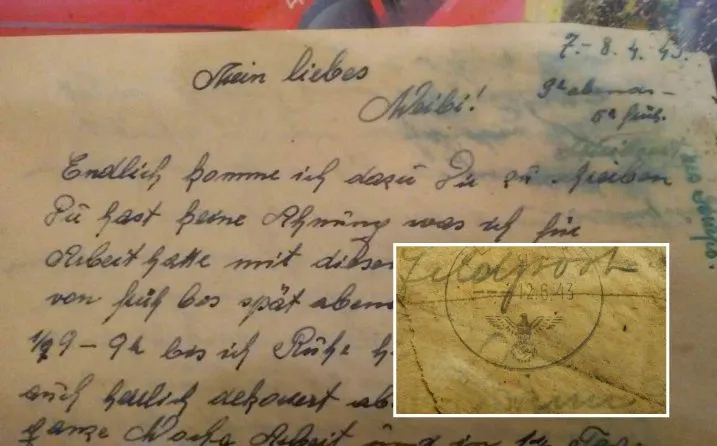 7.-8.4.43.
Mein liebes
9h abends -
Weibi!
5h früh.
Endlich komme ich dazu Dir zu schreiben
Du hast keine Ahnung was ich für
Arbeit hatte mit diesen
von früh bis spät abend
1/2 9-9h bis ich Ruhe h
auch herrlich dekoriert ab
ganze Woche Arbeit und in 14 Tag
Feldpost
12.6.43